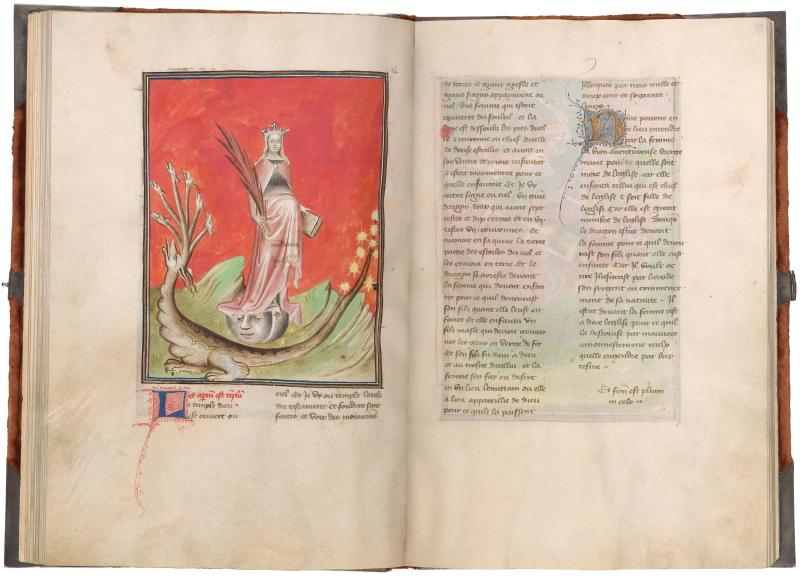 Et apertum est templum
le temple dieu
est ouvert ou
ciel Et Je vy ou temple larche
du testament et fouldres sont
faites et voix des mouvemens
de terres et grant gresle et
grans signes apparurent ou
ciel une femme qui estoit
couverte du souleil et la
lune est dessoubz les piez dicelle
et couronne ou chief dicelle
de douse estoilles et avoit en
son ventre et crioit enfantant
et estoit tourmentee pour ce
quelle enfantoit Et Je vy
autre signe ou ciel un grant
dragon roux qui avoit sept
testes et dix cornes et en vij
testes vij couronnes et
trainoit en sa queue la tierce
partie des estoilles du ciel et
les envoia en terre Et le
dragon se aresta devant
la femme qui devoit enfan
ter pour ce quil devourast
son filz quant elle leust en
fante et elle enfanta un
filz masle qui devoit gouver
ner les gens en verge de fer
et son filz fu ravi a dieu
et au trosne dicellui et la
femme sen fuy ou desert
en un lieu ou elle
a lieu appareillie de dieu
pour ce quilz la paissent
Illecques par trois mille et
deux cens et soixante
Jours
Nous povons en
ce lieu entendre
par la femme
la bien aventureuse vierge
marie pour ce quelle soit
mere de leglise car elle
enfanta cellui qui est chief
de leglise et soit fille de
leglise Car elle est grant
membre de leglise Doncques
le dragon estut devant
la femme pour ce quil devou
rast son filz quant elle eust
enfante Car Il voult oc
cire Jhesucrist par herode
son sergent ou commence
ment de sa nativite Il
estut devant la femme cest
a dire leglise pour ce quil
la destourbe par mauvais
amonnestemens ceulx
quelle engendre par bap
tesme
in celo